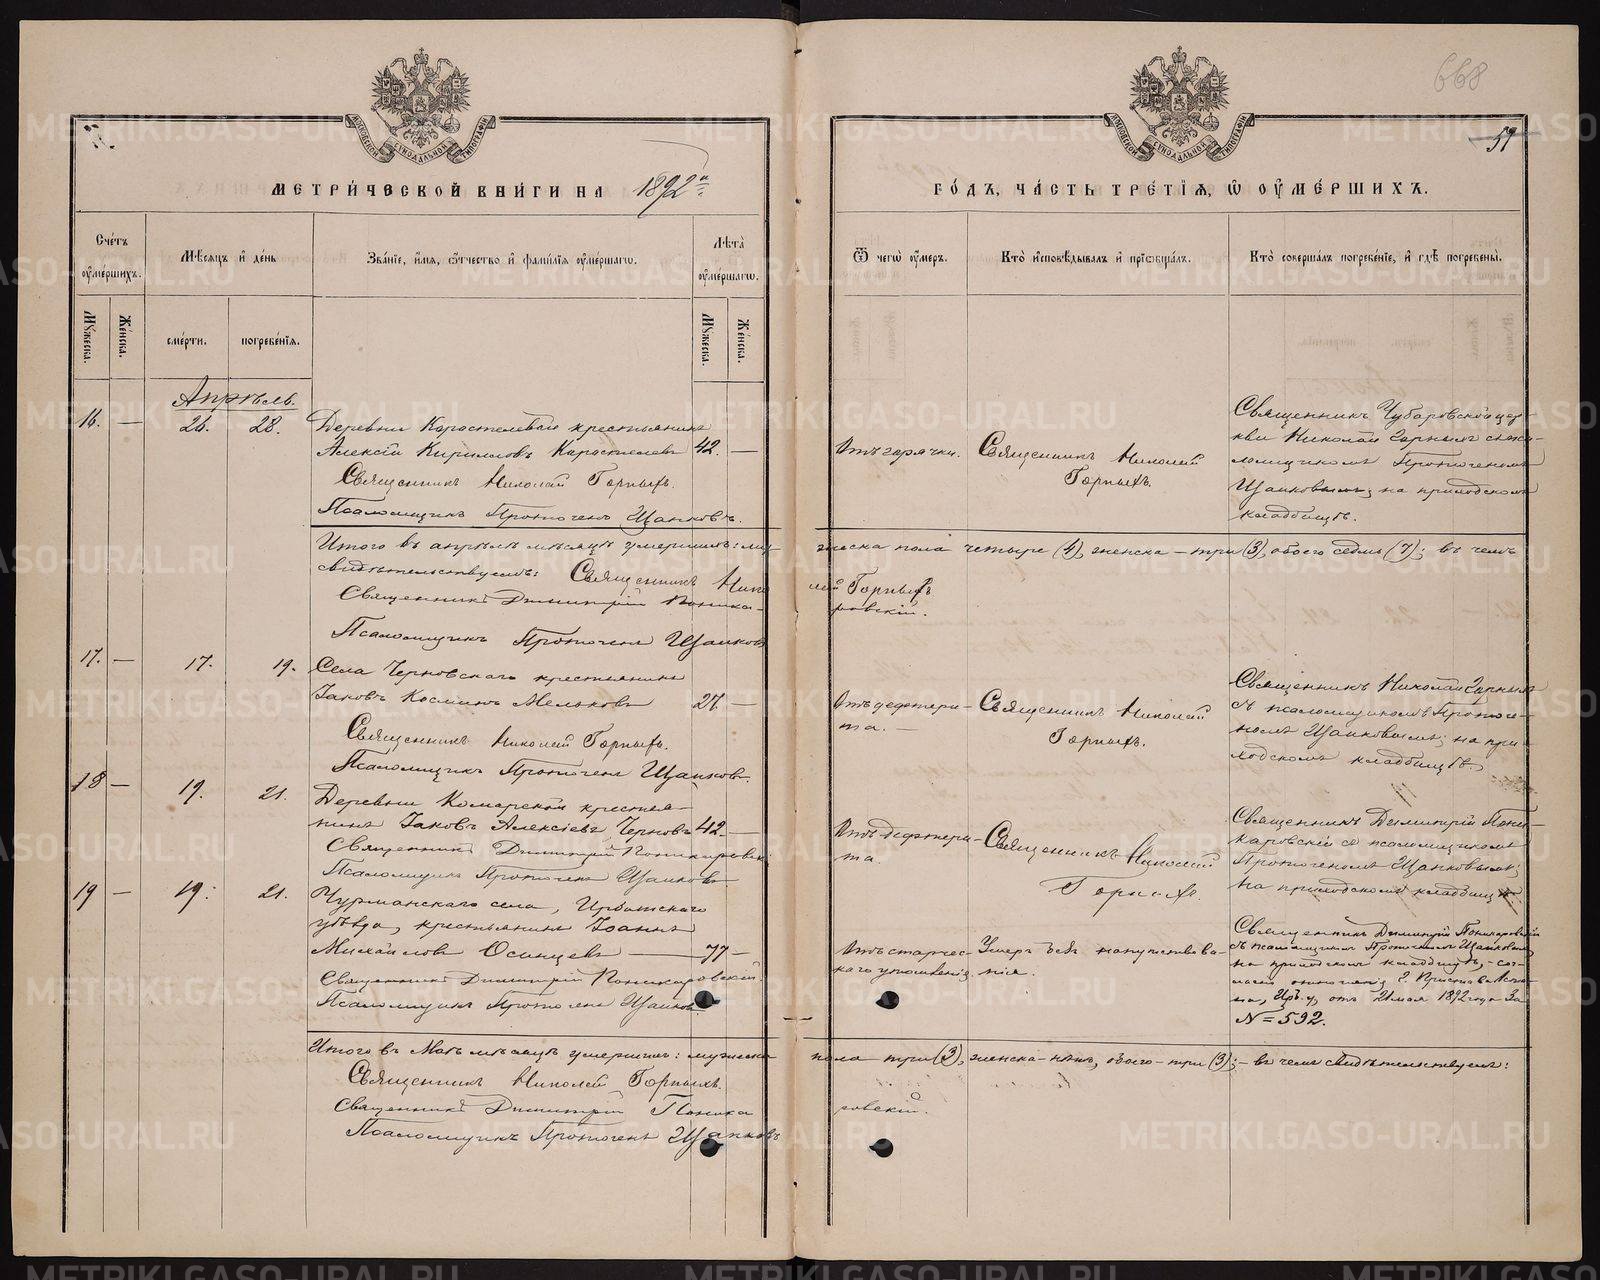 668
59
МОСКОВСКОЙ СѴНОДАЛЬНОЙ ТИПОГРАФІИ
МОСКОВСКОЙ СѴНОДАЛЬНОЙ ТИПОГРАФІИ
МЕТРИ́ЧЕСКОЙ КНИ́ГИ НА 1892й
ГО́ДЪ, ЧА́СТЬ ТРЕ́ТІѦ, Ѡ҆ ОУ҆МЕ́РШИХЪ.
Сче́тъ оу҆ме́ршихъ.
Мѣ́сѧцъ и҆ де́нь
Зва́нїе, и҆́мѧ, ѻ҆́тчество и҆ фами́лїѧ оу҆ме́ршагѡ.
Лѣ́та оу҆ме́ршагѡ.
Ѿ чегѡ̀ оу҆́меръ.
Кто̀ и҆сповѣ́дывалъ и҆ прїѡбща́лъ.
Кто̀ соверша́лъ погребе́нїе, и҆ гдѣ̀ погребены̀.
Мꙋ́жеска. Же́нска. сме́рти. погребе́нїѧ. Мꙋ́жеска. Же́нска.
Апрѣль.
16. — 26. 28. Деревни Коростелевой крестьянинъ
Алексій Кирилловъ Коростелевъ 42. —
Священникъ Николай Горныхъ.
Псаломщикъ Протогенъ Щапковъ.
Отъ горячки.
Священникъ Николай
Горныхъ.
Священникъ Чубаровской цер-
кви Николай Горныхъ съ пса-
ломщикомъ Протогеномъ
Щапковымъ; на приходскомъ
кладбищѣ.
Итого въ апрѣлѣ мѣсяцѣ умершихъ: му-
жеска пола четыре (4), женска — три (3), обоего семь (7); въ чемъ
свидѣтельствуемъ: Священникъ Нико
лай Горныхъ
Священникъ Димитрій Поника-
ровскій.
Псаломщикъ Протогенъ Щапковъ
17. — 17. 19. Села Черновскаго крестьянинъ
Іаковъ Косминъ Мельковъ 27. —
Священникъ Николай Горныхъ.
Псаломщикъ Протогенъ Щапковъ.
Отъ дефтери-
та. —
Священникъ Николай
Горныхъ.
Священникъ Николай Горныхъ
съ псаломщикомъ Протоге-
номъ Щапковымъ; на при-
ходскомъ кладбищѣ.
18 — 19. 21. Деревни Комарской крестья-
нинъ Іаковъ Алексіевъ Черновъ 42. —
Священникъ Димитрій Поникаровскій
Псаломщикъ Протогенъ Щапковъ
Отъ дефтери-
та.
Священникъ Николай
Горныхъ.
Священникъ Димитрій Пони-
каровскій со псаломщикомъ
Протогеномъ Щапковымъ;
на приходскомъ кладбищѣ.
19 — 19. 21. Чурманскаго села, Ирбитскаго
уѣзда, крестьянинъ Іоаннъ
Михайловъ Осинцевъ — 77 —
Священникъ Димитрій Поникаровскій.
Псаломщикъ Протогенъ Щапковъ
Отъ старчес-
каго
Умеръ безъ напутствова-
нія.
Священникъ Димитрій Поникаровскій
съ псаломщикомъ Протогеномъ Щапковымъ
на приходскомъ кладбищѣ,
Г. Пристава
Ирб. у, отъ 21 мая 1892 года за
№ = 592.
Итого въ Маѣ мѣсяцѣ умершихъ: мужеска
пола три (3), женска — нѣтъ, обоего — три (3); — въ чемъ свидѣтельствуемъ:
Священникъ Николай Горныхъ.
Священникъ Димитрій Поника
ровскій.
Псаломщикъ Протогенъ Щапковъ
METRIKI.GASO-URAL.RU